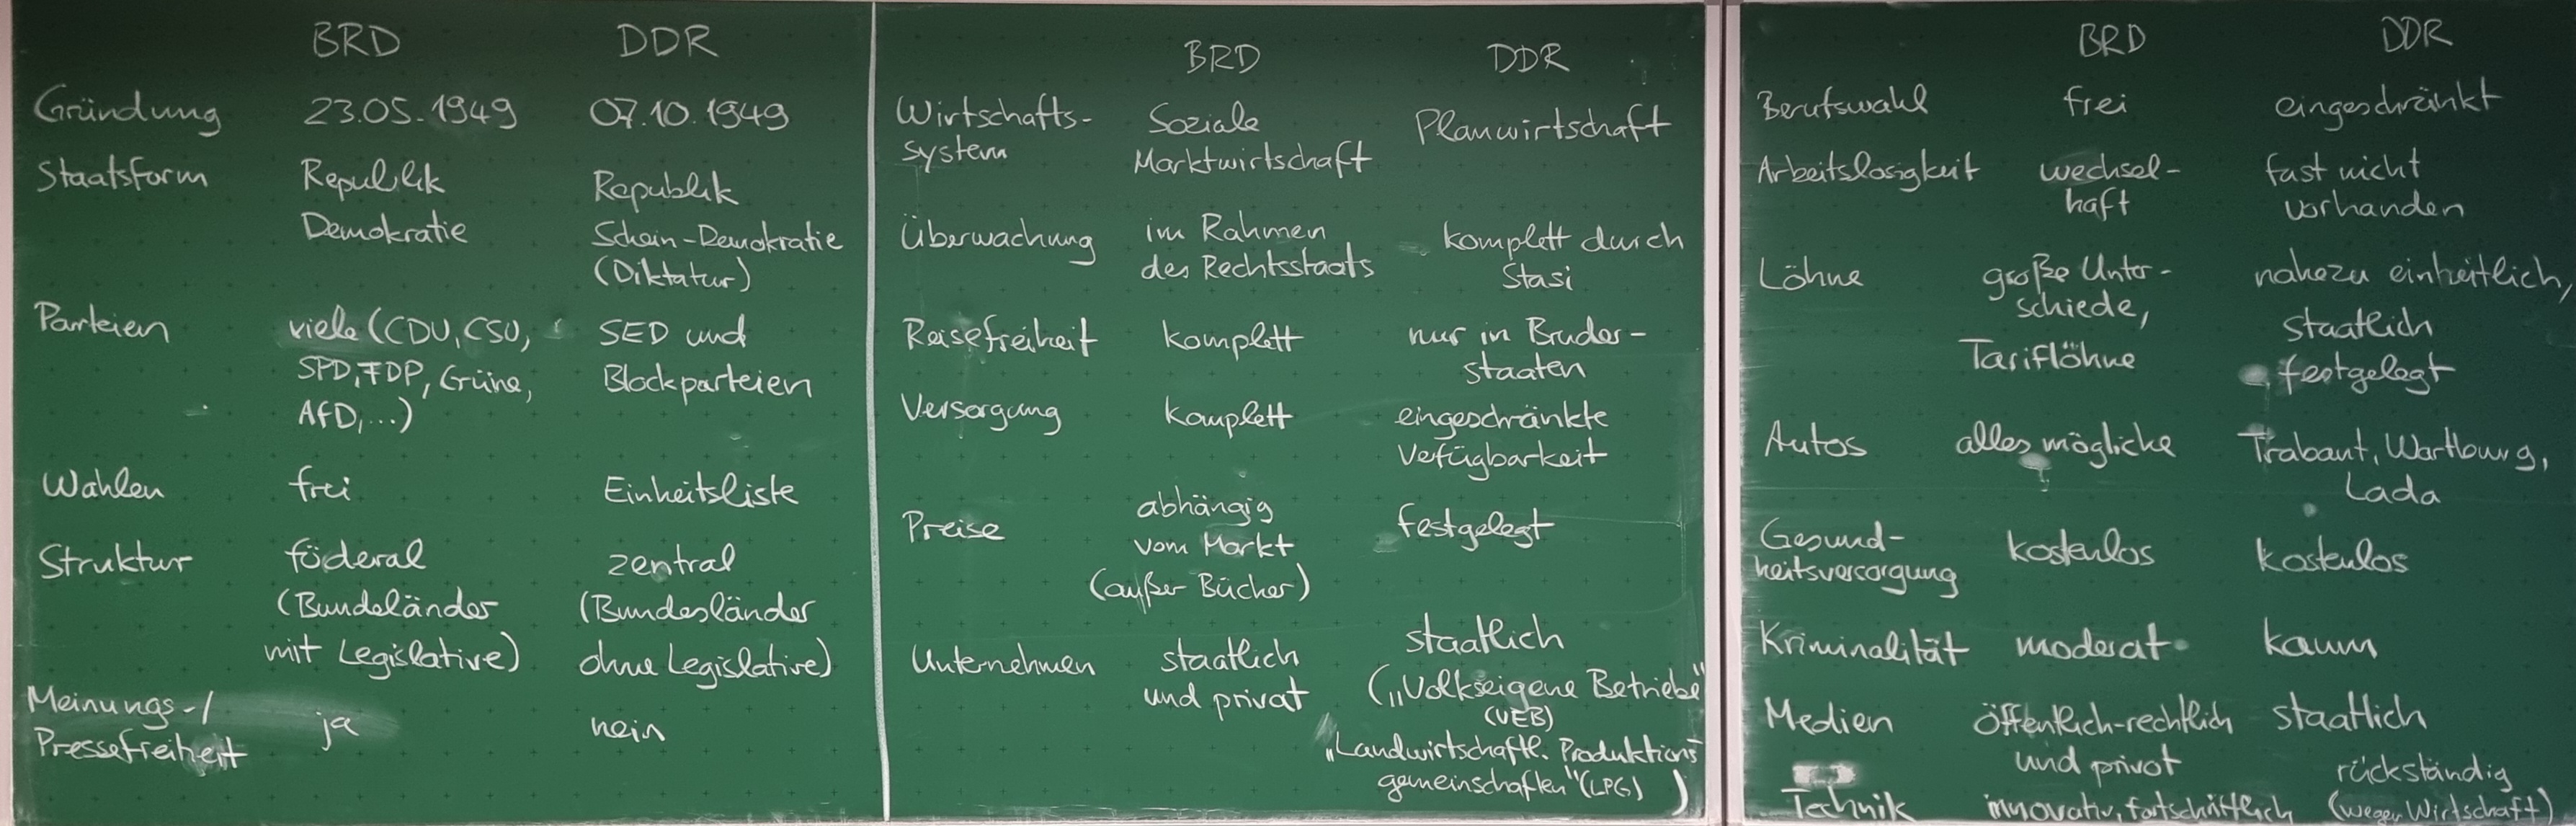 BRD DDR
Gründung 23.05.1949 07.10.1949
Staatsform Republik Republik
Demokratie Schein-Demokratie
(Diktatur)
Parteien viele (CDU, CSU, SED und
SPD, FDP, Grüne, Blockparteien
AfD, ...)
Wahlen frei Einheitsliste
Struktur föderal zentral
(Bundeländer (Bundesländer
mit Legislative) ohne Legislative)
Meinungs-/
Pressefreiheit ja nein
BRD DDR
Wirtschafts- Soziale Planwirtschaft
system Marktwirtschaft
Überwachung im Rahmen komplett durch
des Rechtsstaats Stasi
Reisefreiheit komplett nur in Bruder-
staaten
Versorgung komplett eingeschränkte
Verfügbarkeit
Preise abhängig festgelegt
vom Markt
(außer Bücher)
Unternehmen staatlich staatlich
und privat („Volkseigene Betriebe"
(VEB)
„Landwirtschaftl. Produktions
gemeinschaften" (LPG) )
BRD DDR
Berufswahl frei eingeschränkt
Arbeitslosigkeit wechsel- fast nicht
haft vorhanden
Löhne große Unter- nahezu einheitlich,
schiede, staatlich
Tariflöhne festgelegt
Autos alles mögliche Trabant, Wartburg,
Lada
Gesund- kostenlos kostenlos
heitsversorgung
Kriminalität moderat kaum
Medien öffentlich-rechtlich staatlich
und privat
Technik innovativ, fortschrittlich rückständig
(wegen Wirtschaft)